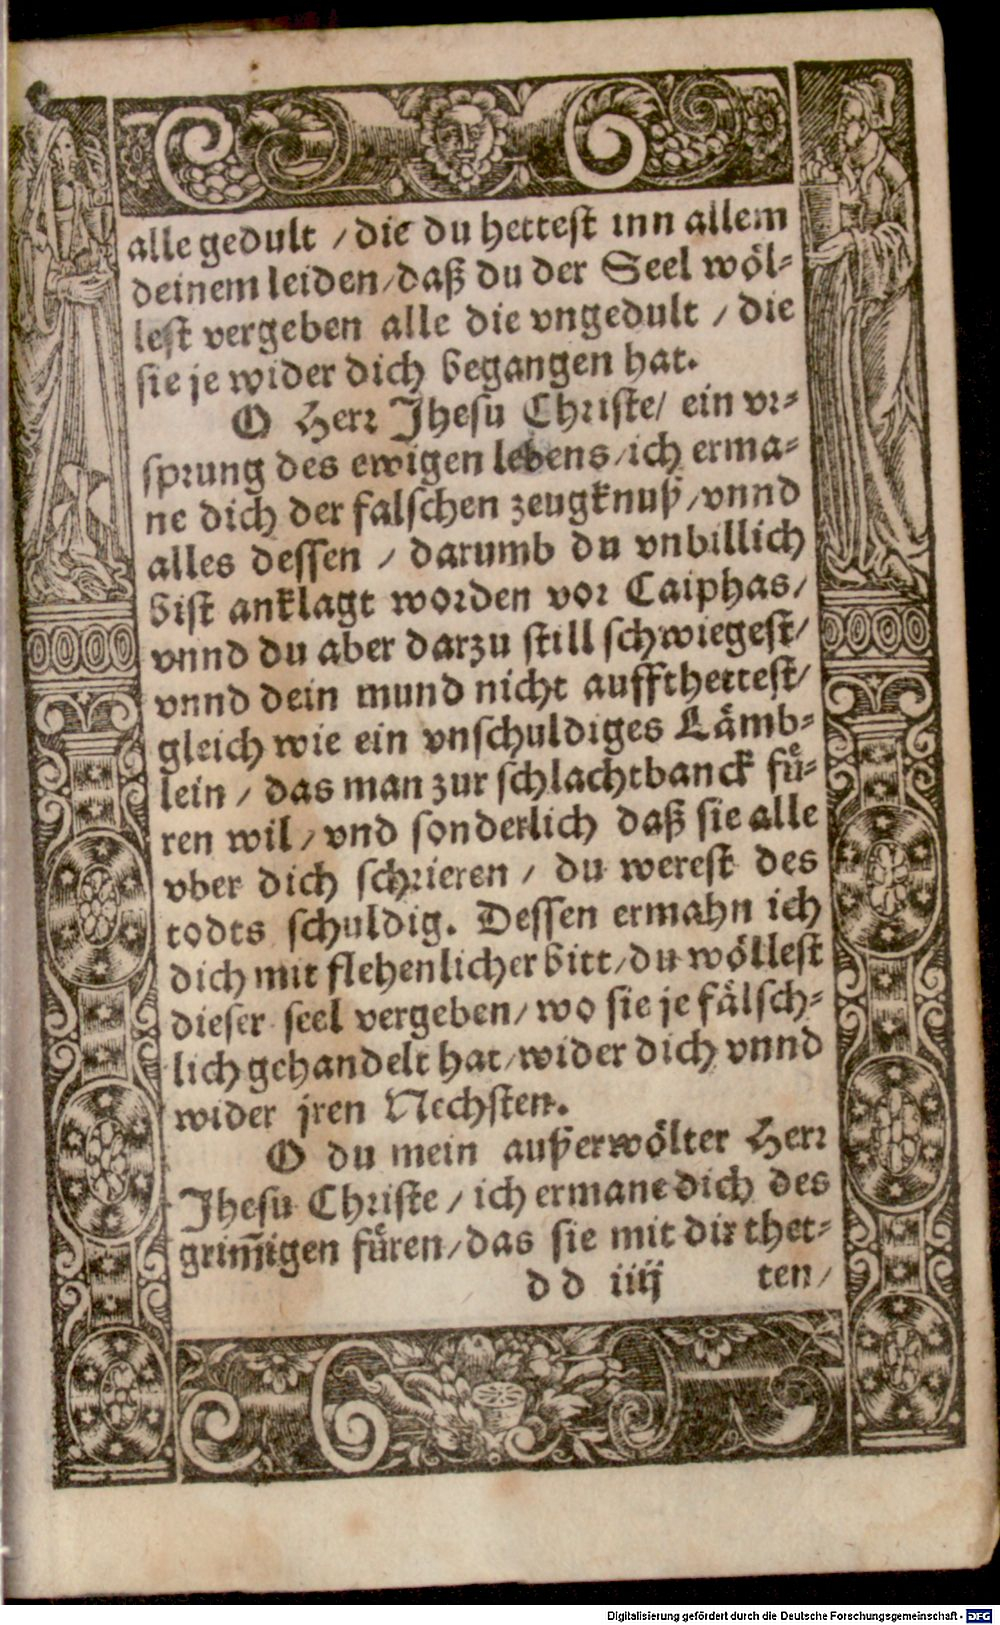 alle gedult / die du hettest inn allem
deinem leiden / daß du der Seel wöl-
lest vergeben alle die vngedult / die
sie je wider dich begangen hat.
O Herr Jhesu Christe / ein vr-
sprung des ewigen lebens / ich erma-
ne dich der falschen zeugknuß / vnnd
alles dessen / darumb du vnbillich
bist anklagt worden vor Caiphas /
vnnd du aber darzu still schwiegest /
vnnd dein mund nicht auffthettest /
gleich wie ein vnschuldiges Lämb-
lein / das man zur schlachtbanck fuͤ-
ren wil / vnd sonderlich daß sie alle
vber dich schrieren / du werest des
todts schuldig. Dessen ermahn ich
dich mit flehenlicher bitt / du wöllest
dieser seel vergeben / wo sie je fälsch-
lich gehandelt hat / wider dich vnnd
wider jren Nechsten.
O du mein außerwölter Herr
Jhesu Christe / ich ermane dich des
grim̄igen fuͤren / das sie mit dir thet-
d d iiij ten /
Digitalisierung gefördert durch die Deutsche Forschungsgemeinschaft - DFG